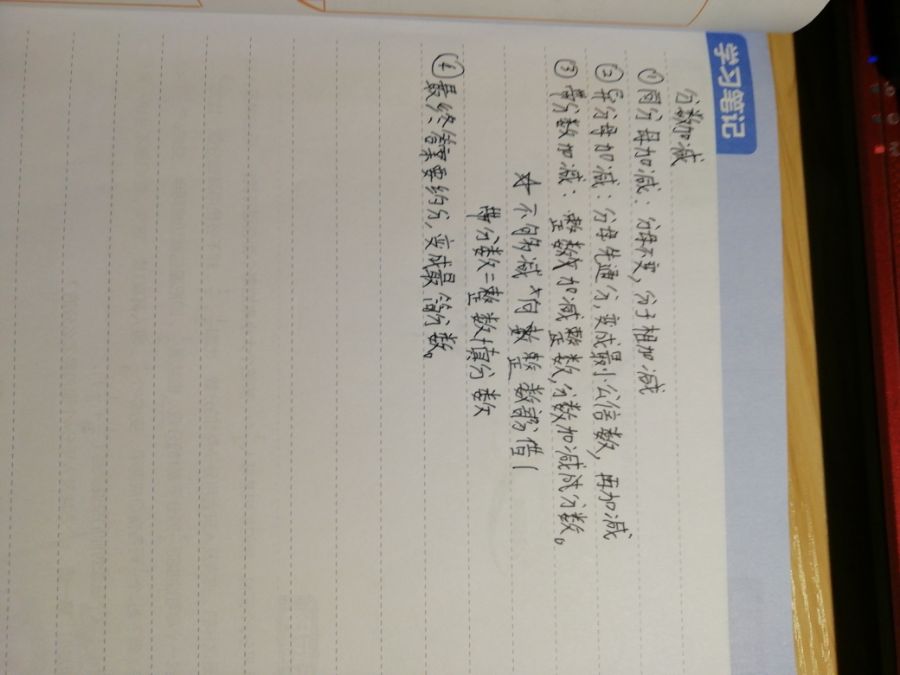 学习笔记
分数加减
①同分母加减：分母不变，分子相加减
②异分母加减：分母先通分，变成最小公倍数，再加减
③带分数加减：整数加减整数，分数加减减分数。
☆不够减↗向整数部分借1
带分数=整数+真分数
④最终答案要约分，变成最简分数。